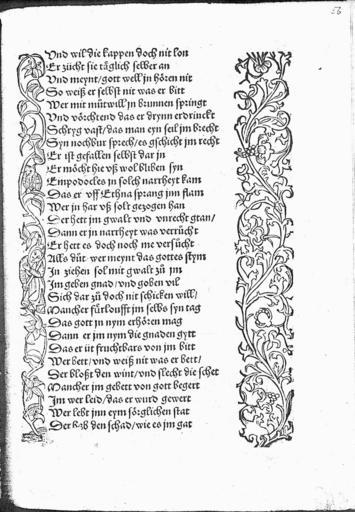 56
Vnd wil die kappen doch nit lon
Er zücht sie täglich selber an
Vnd meynt / gott well jn hören nit
So weiß er selbst nit was er bitt
Wer mit mütwill jn brunnen springt
Vnd vörchtend das er drynn erdrinckt
Schryg vast / das man eyn seil jm brecht
Syn nochbur sprech / es gschicht jm recht
Er ist gefallen selbst dar jn
Er möcht hie vß wol bliben syn
Empodocles jn solch narrheyt kam
Das er vff Ethna sprang jnn flam
Wer jn har vß solt gezogen han
Der hett jm gwalt vnd vnrecht gtan /
Dann er jn narrheyt was verrücht
Er hett es doch noch me versücht
Alls düt wer meynt das gottes stym
In ziehen sol mit gwalt zü jm
Im geben gnad / vnd goben vil
Sich dar zü doch nit schicken will /
Mancher fürloufft jm selbs syn tag
Das gott jn nym erhören mag
Dann er jm nym die gnaden gytt
Das er üt fruchtbars von jm bitt
Wer bett / vnd weiß nit was er bett /
Der bloßt den wint / vnd schlecht die schet
Mancher jm gebett von gott begert
Im wer leid / das er wurd gewert
Wer lebt jnn eym sörglichen stat
Der hab den schad / wie es jm gat